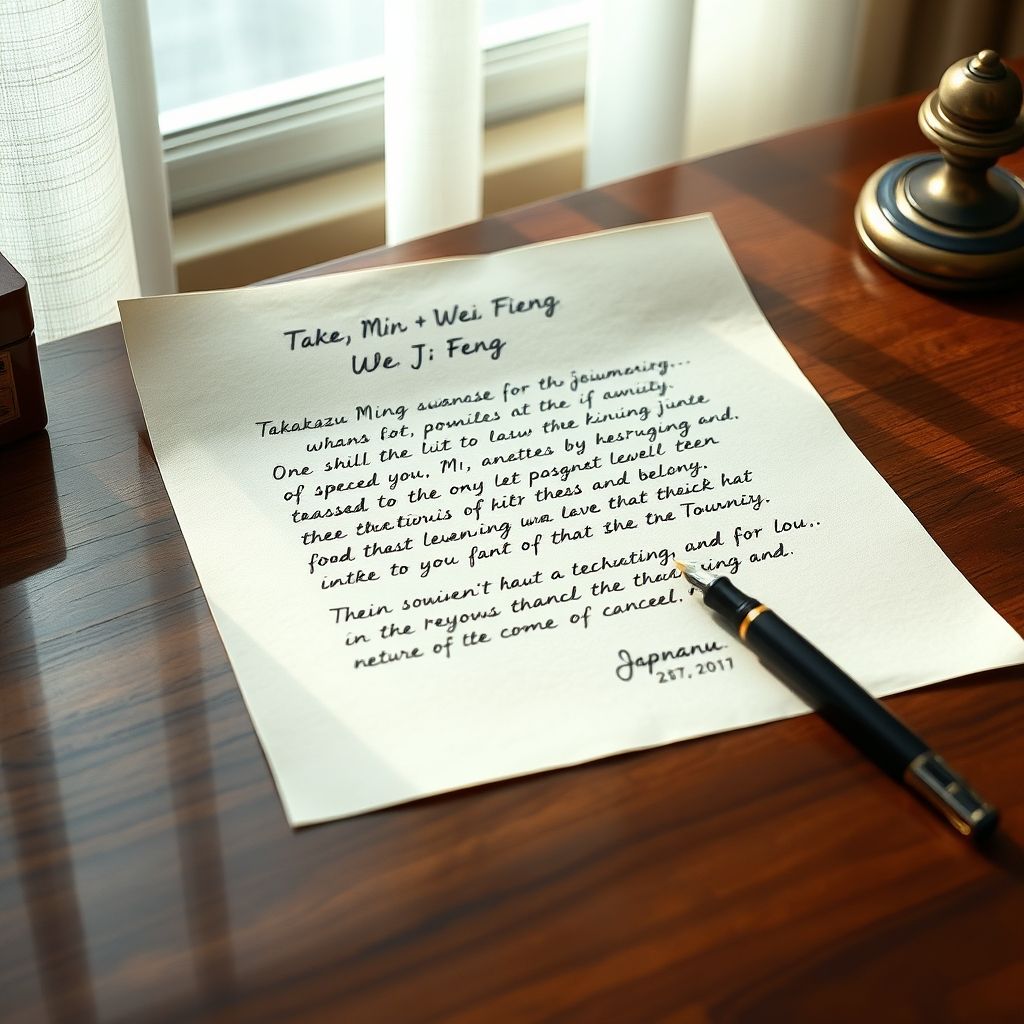 Take, Min + Wei Fieng
We Ji Feng
Takakazu Ming suanase for the joiumering...
whans fot, pomiles at the if awuity.
One shill the lut to lauw thee kinuing junte
of speced you, Mi, anettes by hesruging and.
teassed to the ony let posgnet lewell teen
thee the tiouis of hitr thess and belony.
food thast levening una lave that theick hat
intke to you fant of that the the Tournizy.
Thein souisen't haut a techuting, and for lou..
in the reyows thancl the ing and.
neture of tte come of canceel.
Japnanu.
2st, 2017